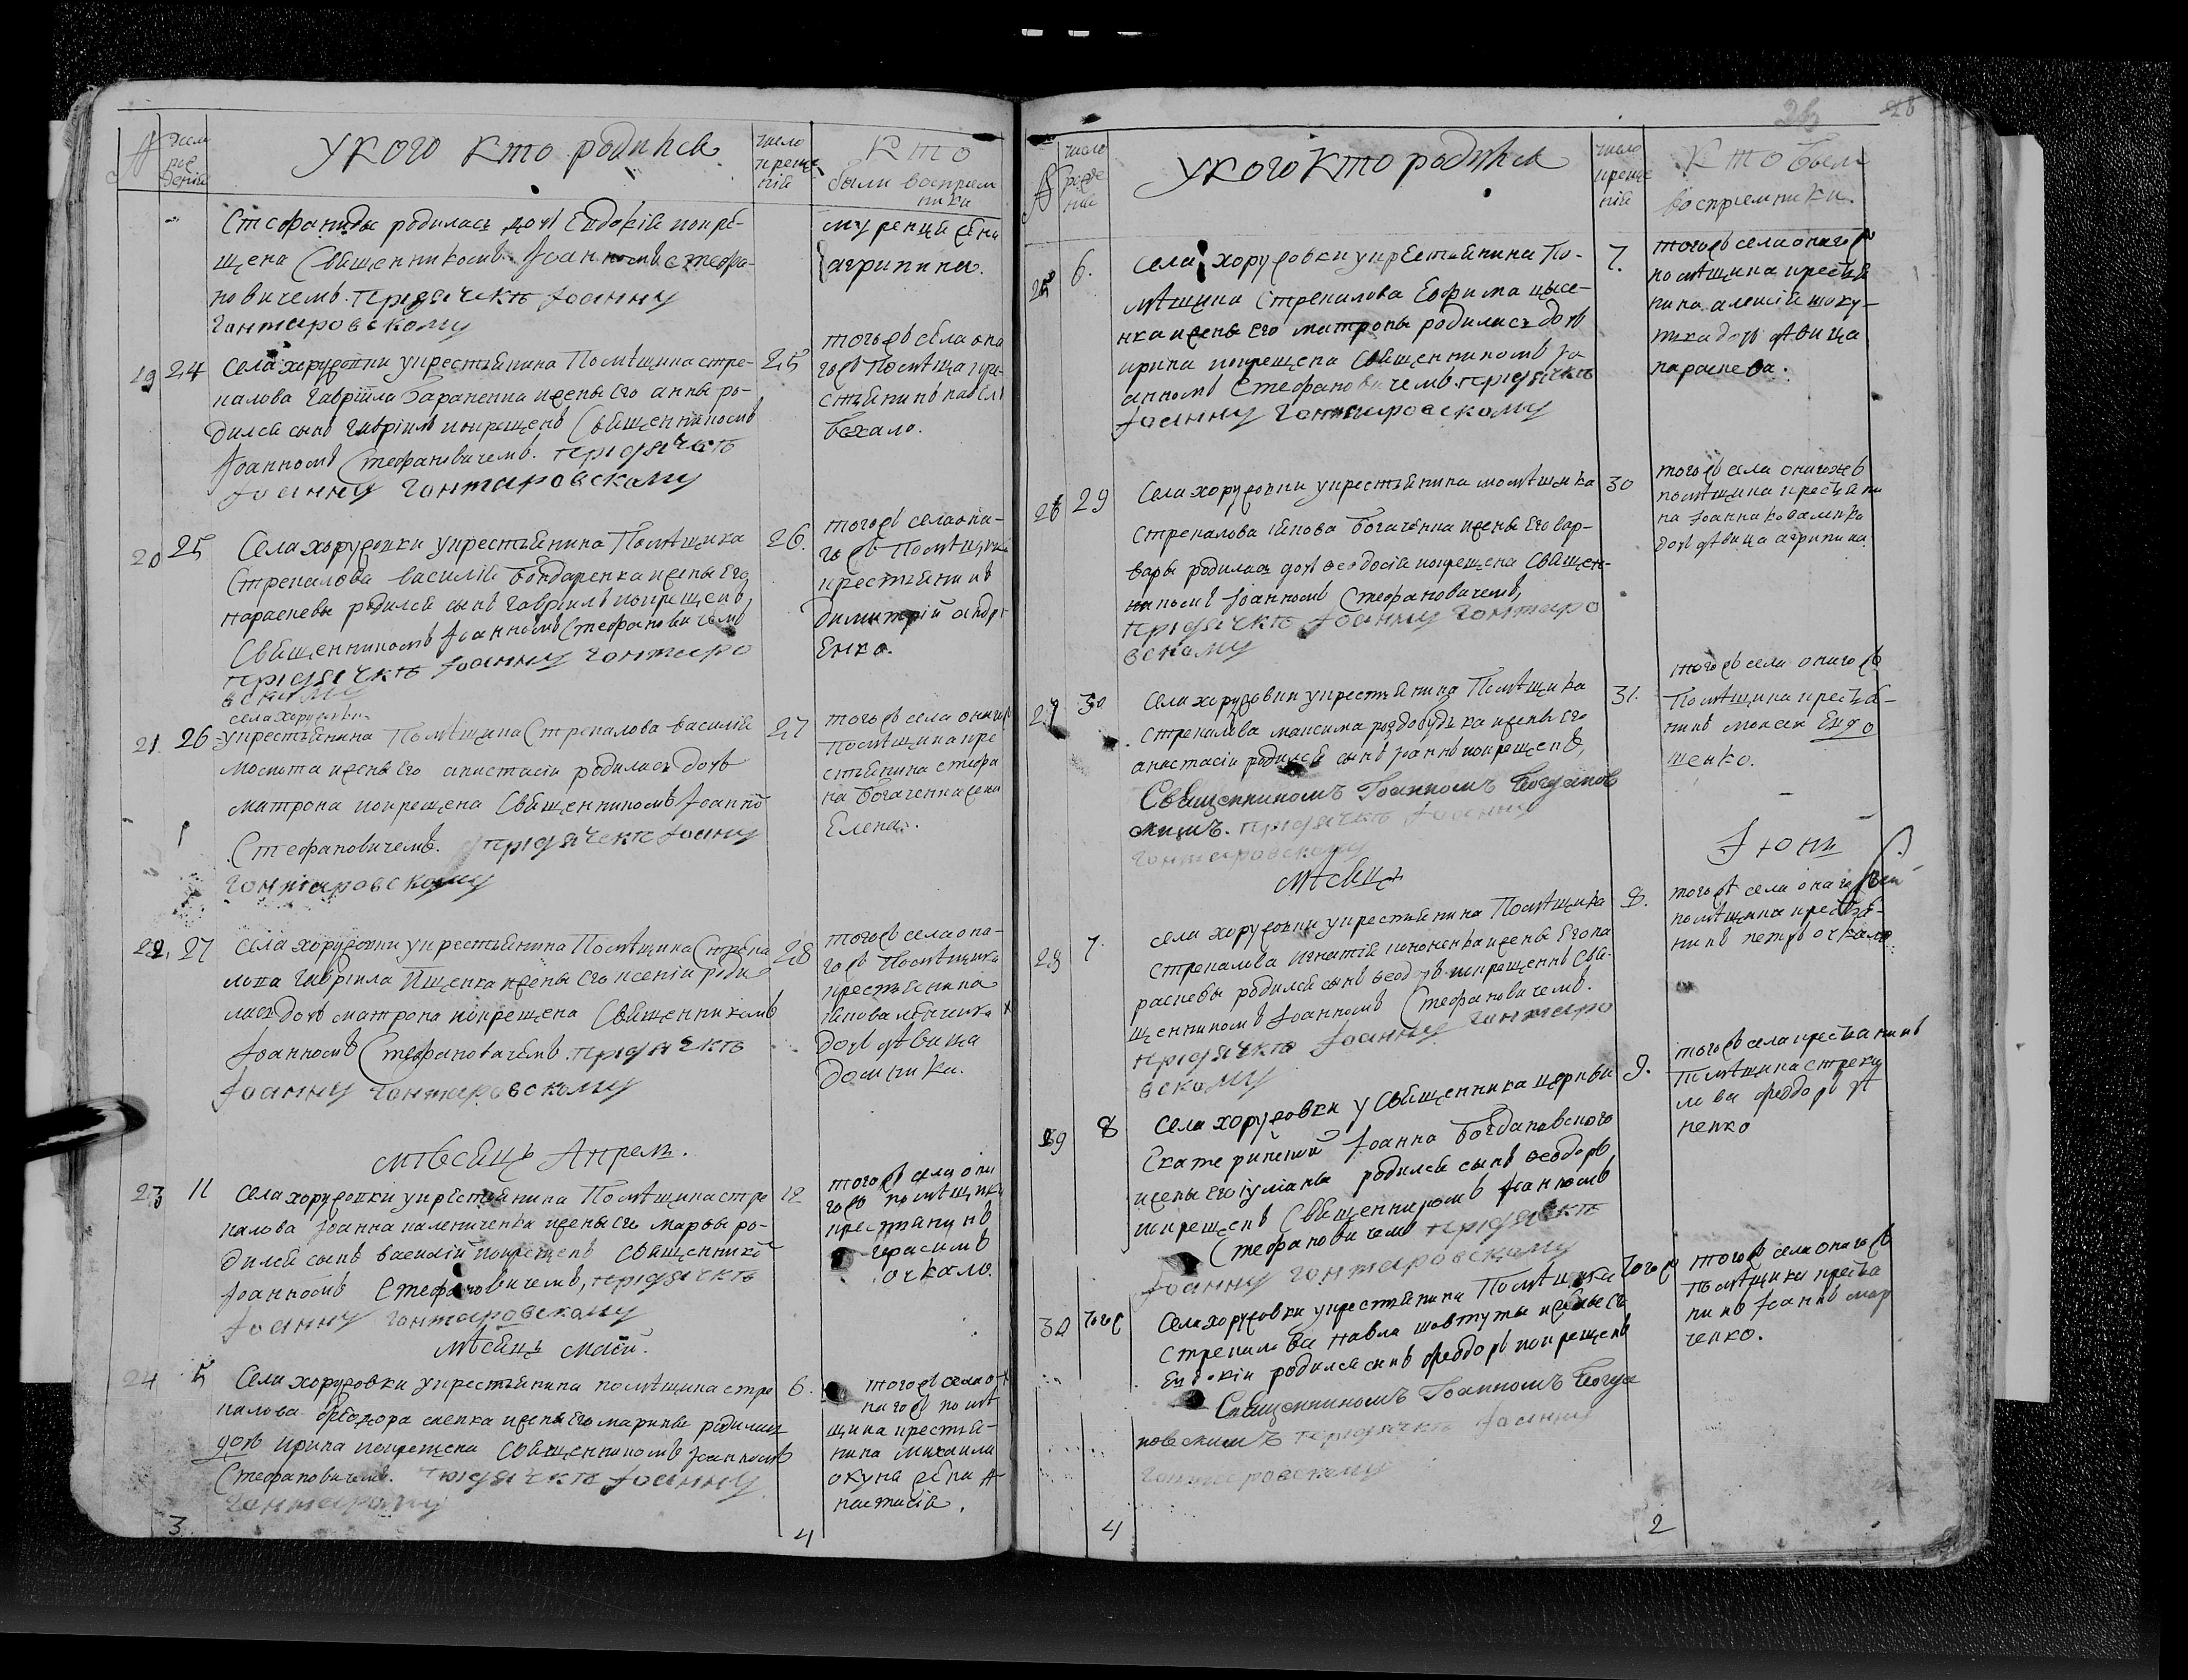 28
№
число
рожде
ній
У кого кто родился
число
креще
ній
Кто
были воспріем
ники
Стефаниды родилась дочь Евдокія и окре-
щена Священникомъ Іоанномъ Стефа-
новичемъ. при дячкѣ Іоанну
Гонтаровскому
жена
агрипина.
19 24
Села хоружовки у крестьянина Помѣщика Стре-
калова Гавріила Бараненка и жены Его анны ро-
дился сынъ Гавріилъ и окрещенъ Священникомъ
Іоанномъ Стефановичемъ. при дячкѣ
Іоанну Гонтаровскому
25
тогожъ села она
гожъ Помѣщика кре
стьянинъ
20 25
Села хоружовки у крестьянина Помѣщика
Стрекалова василія Бондаренка и жены Его
параскевы родился сынъ Гавріилъ и окрещенъ
Священникомъ Іоанномъ Стефановичемъ
при дячкѣ Іоанну Гонтаро
вскому
26.
тогожъ села она-
гожъ Помѣщика
крестьянинъ
димитрій андрі
Енко.
села хоружовки
21. 26
у крестьянина Помѣщика Стрекалова василія
и жены Его анастасіи родилась дочь
матрона и окрещена Священникомъ Іоанно
Стефановичемъ. при дячкѣ Іоанну
Гонтаровскому
27
тогожъ села онагожъ
Помѣщика кре
стьянина стефа
на Богаченка жена
Елена.
22. 27
Села хоружовки у крестьянина Помѣщика Стрека
лова Гавріила Ищенка и жены Его ксеніи роди
лась дочь матрона и окрещена Священникомъ
Іоанномъ Стефановичемъ. при дячкѣ
Іоанну Гонтаровскому
28
тогожъ села она-
гожъ Помѣщика
крестьянина
дочь дѣвица
Домника.
мѣсяцъ Апрель.
23 11
Села хоружовки у крестьянина Помѣщика Стре
калова Іоанна и жены Его марѳы ро-
дился сынъ василій и окрещенъ Священнико
Іоанномъ Стефановичемъ, при дячкѣ
Іоанну Гонтаровскому
12
тогожъ села она
гожъ помѣщика
крестянинъ
герасимъ
очкало.
мѣсяцъ май.
24 5
Села хоружовки у крестьянина помѣщика Стре
калова Феодора и жены Его марины родилась
дочь ирина и окрещена Священникомъ Іоанномъ
Стефановичемъ. при дячкѣ Іоанну
6.
тогожъ села о
нагожъ помѣ
щика крестья-
нина михаила
окуна жена А
настасія.
3
4
№
число
рожде
ній
У кого Кто родился
число
креще
ній
Кто Были
воспріемники.
25 6.
Села хоружовки у крестьянина По-
мѣщика Стрекалова Ефима
и жены Его матроны родилась дочь
ирина и окрещена Священникомъ Іо
анномъ Стефановичемъ. при дячкѣ
Іоанну Гонтаровскому
7.
тогожъ села онагожъ
помѣщика крестья
нина алексія
дочь дѣвица
параскева.
26 29
Села хоружовки у крестьянина помѣщика
Стрекалова Іакова Богаченка и жены Его вар-
вары родилась дочь Ѳеодосія и окрещена Священ-
никомъ Іоанномъ Стефановичемъ,
при дячкѣ Іоанну Гонтаро
вскому
30
тогожъ села онагожъ
помѣщика крестьяни
на Іоанна коваленка
дочь дѣвица агрипина
27 30
Села хоружовки у крестьянина Помѣщика
Стрекалова максима и жены Его
анастасіи родился сынъ Іоаннъ и окрещенъ,
Священникомъ Іоанномъ Богданов
скимъ. при дячкѣ Іоанну
Гонтаровскому
31.
тогожъ села онагожъ
Помѣщика крестья-
нинъ моисей Евдо
щенко.
мѣсяцъ
Іюнь
28 7.
Села хоружовки у крестьянина Помѣщика
Стрекалова Игнатія и жены Его па
раскевы родился сынъ Ѳеодоръ и окрещенъ Свя-
щенникомъ Іоанномъ Стефановичемъ.
при дячкѣ Іоанну Гонтаро
вскому
8.
тогожъ села онагожъ
помѣщика крестья-
нинъ петръ очкало.
29 8
Села хоружовки у Священника церкви
Екатериненой Іоанна Богдановского
и жены Его іуліаны родился сынъ Ѳеодоръ,
и окрещенъ Священникомъ Іоанномъ
Стефановичемъ при дячкѣ
Іоанну Гонтаровскому
9.
тогожъ села крестьянинъ
Помѣщика Стрека
лова Феодоръ
ненко
30 тогож
Села хоружовки у крестьянина Помѣщика
Стрекалова павла шовтуты и жены Его
Евдокіи родился сынъ Феодоръ и окрещенъ
Священникомъ Іоанномъ Богда
новскимъ при дячкѣ Іоанну
Гонтаровскому
тогож
тогожъ села онагожъ
Помѣщика крестья
нинъ Іоаннъ мар
ченко.
4
2